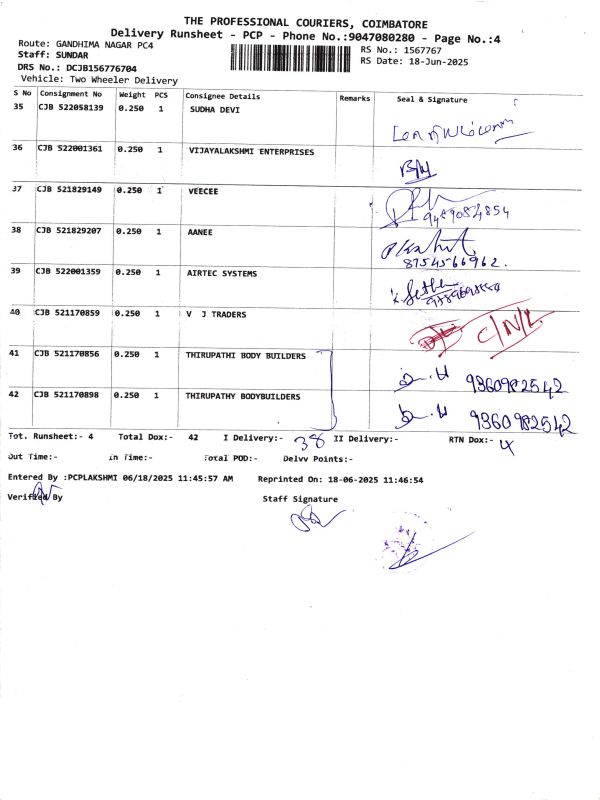 THE PROFESSIONAL COURIERS, COIMBATORE
Delivery Runsheet - PCP - Phone No.:9047080280 - Page No.:4
Route: GANDHIMA NAGAR PC4
RS No.: 1567767
Staff: SUNDAR
RS Date: 18-Jun-2025
DRS No.: DCJB156776704
Vehicle: Two Wheeler Delivery
S No Consignment No Weight PCS Consignee Details Remarks Seal & Signature
35 CJB 522058139 0.250 1 SUDHA DEVI
36 CJB 522001361 0.250 1 VIJAYALAKSHMI ENTERPRISES
37 CJB 521829149 0.250 1 VEECEE
9489084854
38 CJB 521829207 0.250 1 AANEE
8754566962.
39 CJB 522001359 0.250 1 AIRTEC SYSTEMS
40 CJB 521170859 0.250 1 V J TRADERS C/N/L
41 CJB 521170856 0.250 1 THIRUPATHI BODY BUILDERS 9360982542
42 CJB 521170898 0.250 1 THIRUPATHY BODYBUILDERS 9360982542
Tot. Runsheet:- 4 Total Dox:- 42 I Delivery:- 38 II Delivery:- RTN Dox:- 4
Out Time:- In Time:- Total POD:- Delvv Points:-
Entered By :PCPLAKSHMI 06/18/2025 11:45:57 AM Reprinted On: 18-06-2025 11:46:54
Verified By Staff Signature